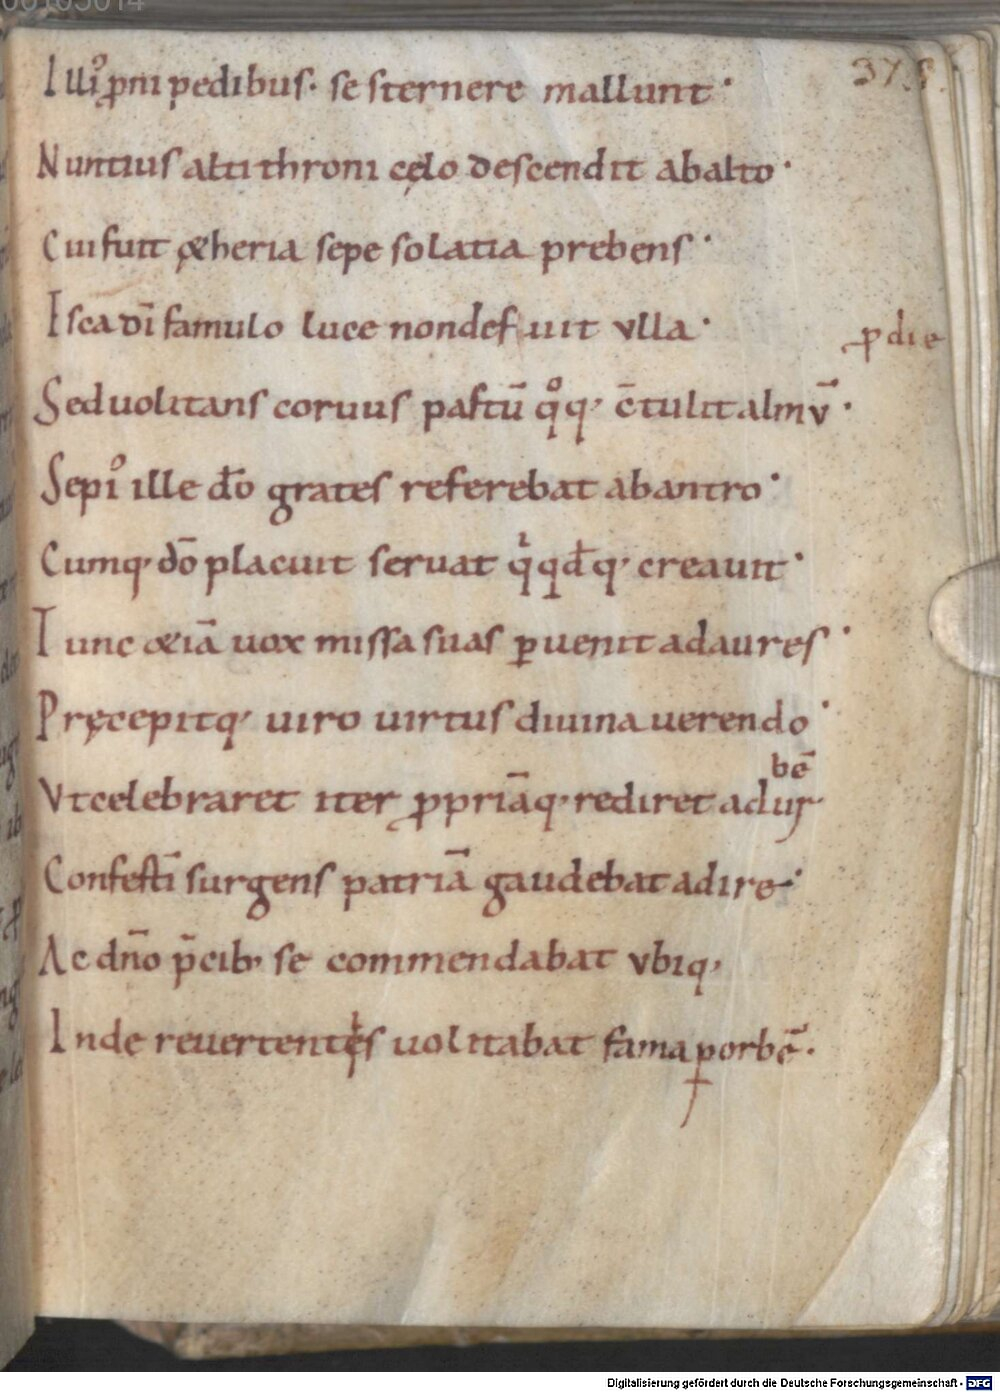 00103014
37.
Illiꝰ ꝓni pedibus· se sternere mallunt·
Nuntius alti throni cęlo descendit abalto·
Cui fuit ętheria sepe solatia prebens·
Isca dī famulo luce nondefuit vlla·
ꝑ die
Sed uolitans coruus pastū qͦq; c̄tulit almv̄·
Sepiꝰ ille do̅ grates referebat abantro·
Cumq; do̅ placuit seruat qͥqd̄q; creauit·
Tunc etiā uox missa suas ꝑuenit adaures·
Pręcepitq; uiro uirtus diuina uerendo·
bē
Vt celebraret iter ꝓpriāq; rediret adur
Confestī surgens patriā gaudebat adire·
Ac dn̄o p̄cib; se commendabat vbiq;
Inde reuertentis uolitabat fama ꝑ orbē·
Digitalisierung gefördert durch die Deutsche Forschungsgemeinschaft - DFG